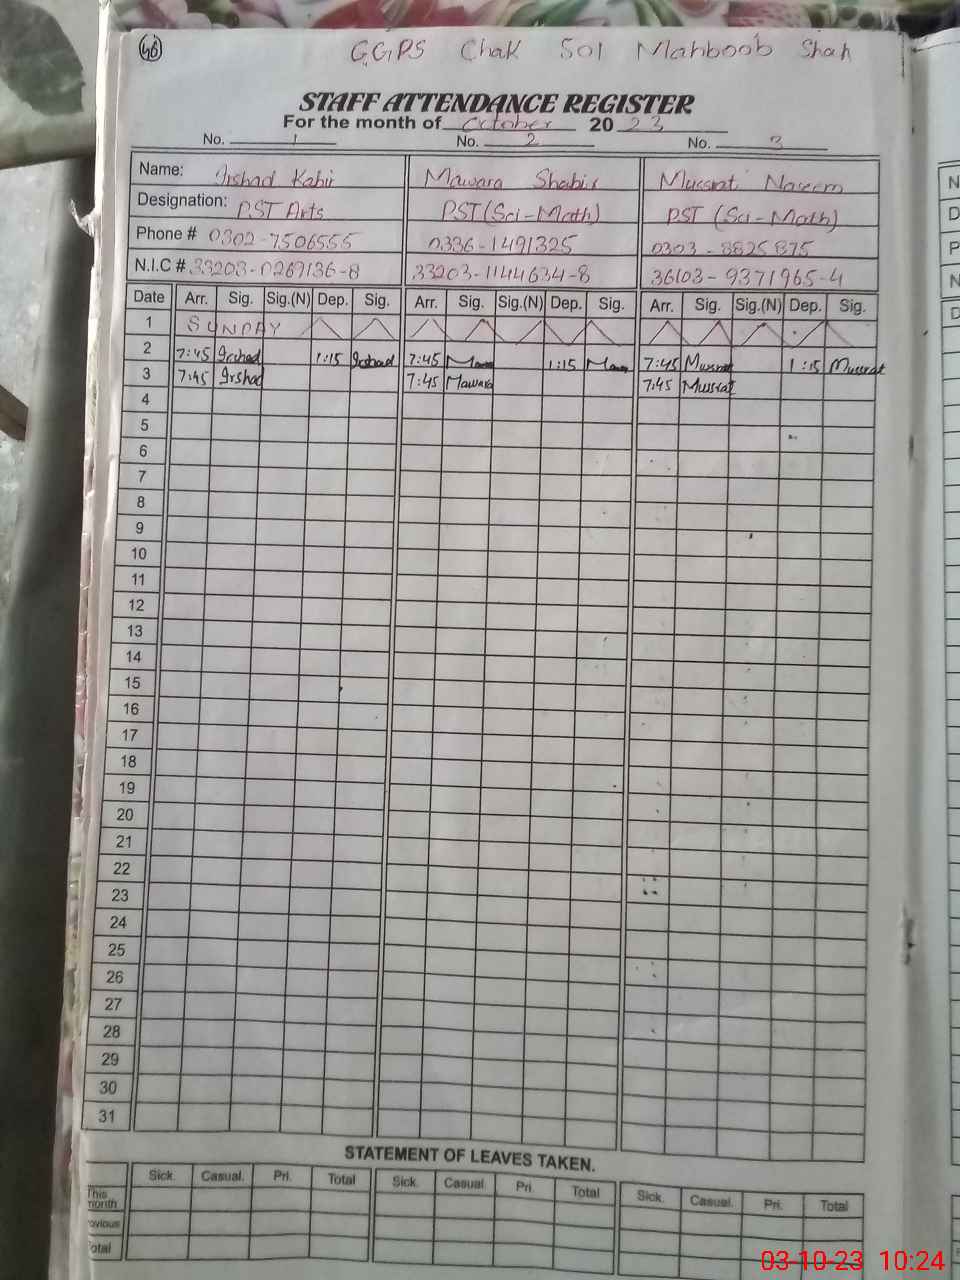 46
GGPS Chak 501 Mahboob Shah
STAFF ATTENDANCE REGISTER
For the month of October 2023
No. 1 No. 2 No. 3
Name: Irshad Kabir Mawara Shabir Mussrat Naseem
Designation: PST Arts PST (Sci-Math) PST (Sci-Math)
Phone # 0302-7506555 0336-1491325 0303-8825875
N.I.C # 33203-0269136-8 33203-1144634-8 36103-9371965-4
Date Arr. Sig. Sig.(N) Dep. Sig. Arr. Sig. Sig.(N) Dep. Sig. Arr. Sig. Sig.(N) Dep. Sig.
1 SUNDAY
2 7:45 Irshad 1:15 Irshad 7:45 1:15 7:45 Mussrat 1:15 Mussrat
3 7:45 Irshad 7:45 Mawara 7:45 Mussrat
4
5
6
7
8
9
10
11
12
13
14
15
16
17
18
19
20
21
22
23
24
25
26
27
28
29
30
31
STATEMENT OF LEAVES TAKEN.
Sick. Casual. Pri. Total Sick. Casual. Pri. Total Sick. Casual. Pri. Total
This
month
ovious
otal
03-10-23 10:24